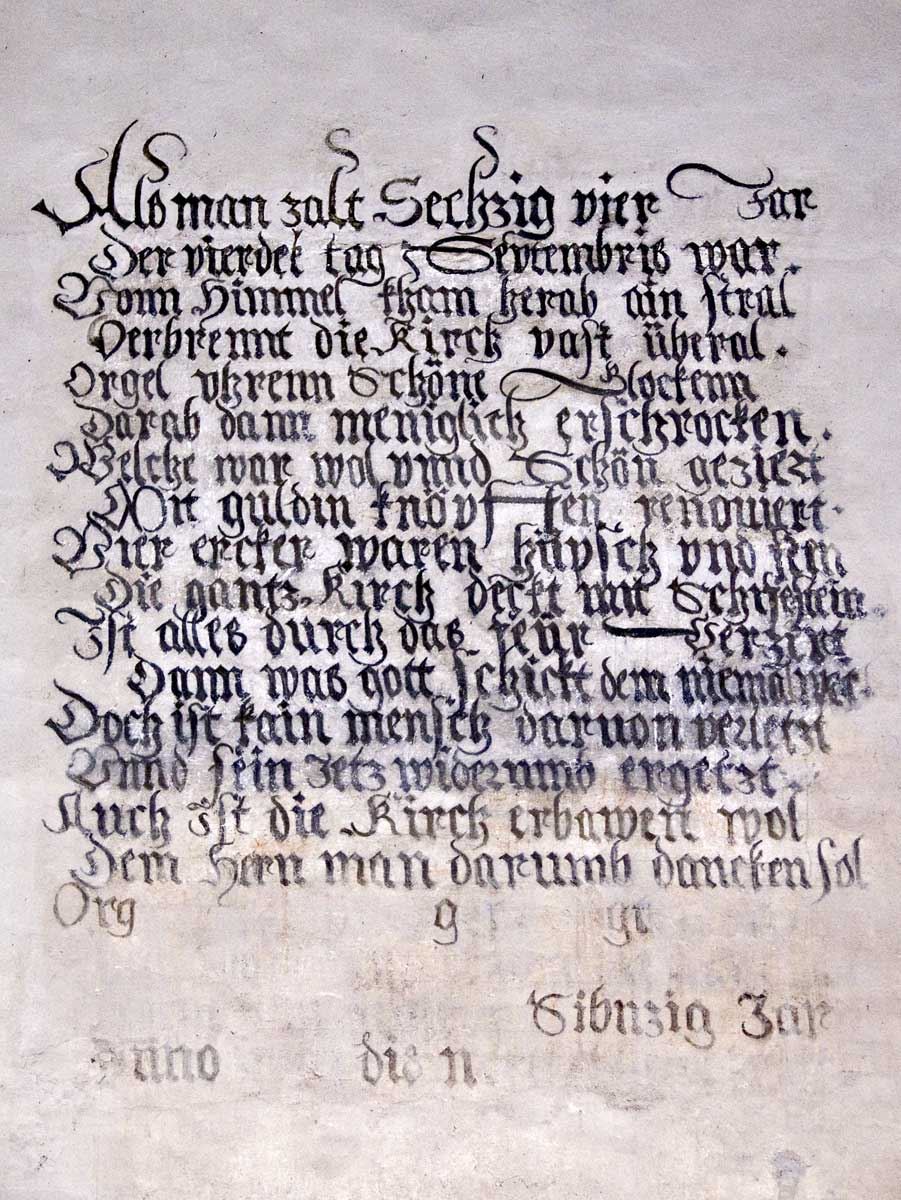 Als man zalt Sechzig vier Jar
Der vierdet tag Septembris war.
Vonn Himmel kham herab ain stral
Verbrennt die Kirch vast überal.
Orgel vhrenn Schöne Glockenn
Darab dann meniglich erschrocken.
Welche war wol vnnd Schön geziert
Mit guldin knöpffen renouiert.
Vier ercker waren hüpsch vnd fein
Die gantz Kirch deckt mit
Ist alles durch das feür
Dann was gott schickt dem niemat
Doch ist kain mensch daruon verletzt
Vnnd sein Jetz widerumb ergetzt.
Auch ist die Kirch erbawen wol
Dem Hern man darumb dancken sol
Org g gr
Sibnzig Jar
Anno die n